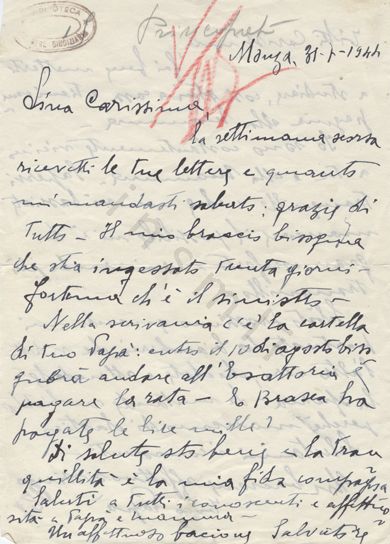 BIBLIOTECA
Monza, 31-7-1944
Lina Carissima
la settimana scorsa
ricevetti le tue lettere e quanto
mi mandasti sabato: grazie di
tutto - Il mio braccio bisogna
che stia ingessato trenta giorni -
fortuna ch'è il sinistro -
Nella scrivania c'è la cartella
di tuo Papà: entro il 10 di agosto
andare all'Esattoria e
pagare la rata - E Brasca ha
pagato le lire mille?
Di salute sto bene - la tran
quillità è la mia fida compagna
Saluti a tutti i conoscenti e affettuo
sità a Papà e mamma
Un affettuoso bacione Salvatore